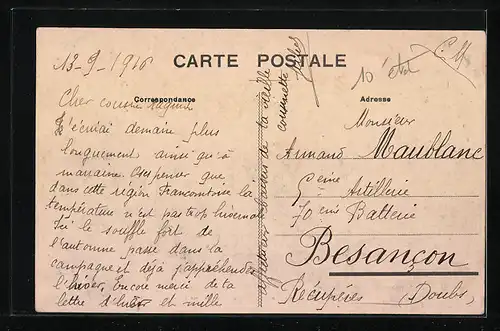 13-9-1916
CARTE POSTALE
Correspondance
Adresse
Cher cousin
J'écrirai demain plus
longuement ainsi qu'à
marraine. J'ose penser que
dans cette région Francomtoise la
température n'est pas trop hivernale
Ici le souffle fort de
l'automne passe dans la
campagne et déjà j'appréhende
l'hiver. Encore merci de ta
lettre d'hier et mille
affectueux baisers de ta vieille
cousinette
Monsieur
Armand Maublanc
5eme Artillerie
70eme Batterie
Besançon
Récupérés (Doubs)